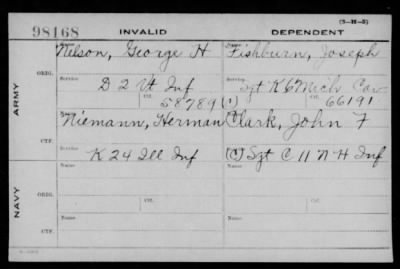 (3-H-5)
98168 INVALID DEPENDENT
Nelson, George H Fishburn, Joseph
ORIG. Service D 2 Vt Inf Sgt K 6 Mich Cav
Ctf. 58789 (1) Ctf. 66191
ARMY
Niemann, Herman Clark, John F
CTF. Service K 24 Ill Inf (C) Sgt C 11 N H Inf
Name Name
ORIG. Service Ctf. Service Ctf.
NAVY
Name Name
CTF. Service Service